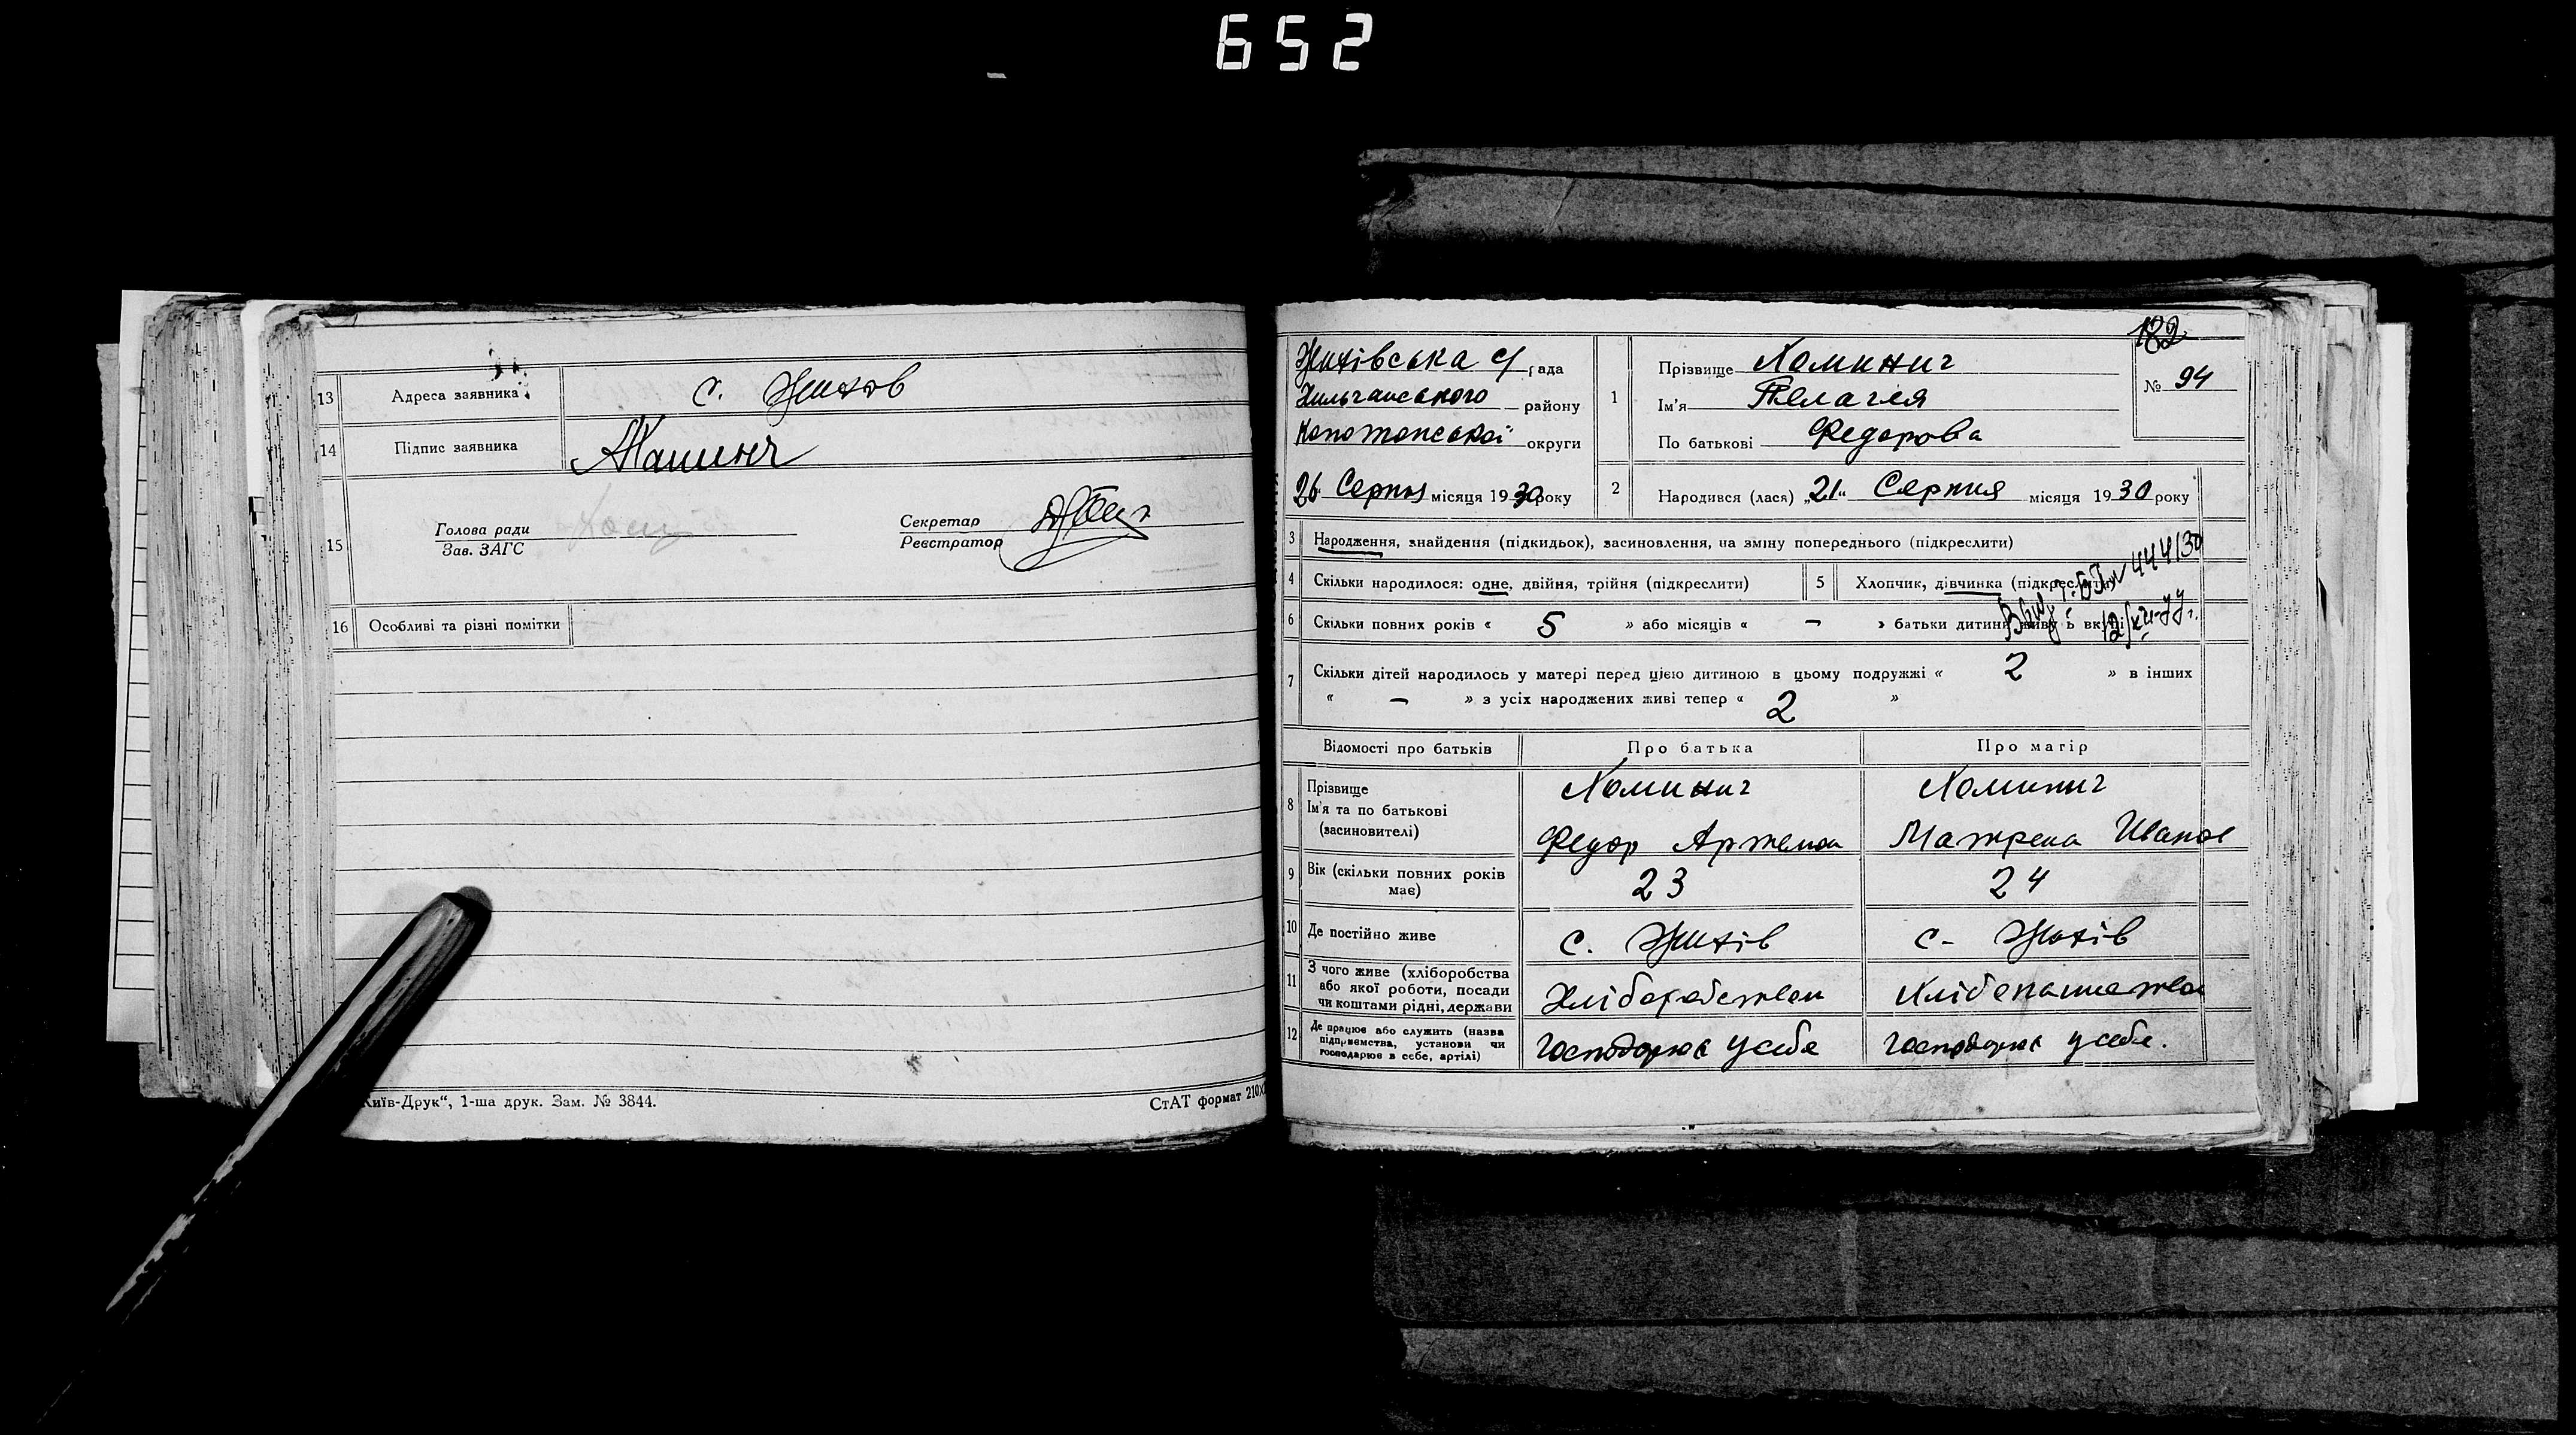 652
13 Адреса заявника с. Жихов
14 Підпис заявника
15 Голова ради
Зав. ЗАГС
Секретар
Реєстратор
16 Особливі та різні помітки
Київ-Друк“, 1-ша друк. Зам. № 3844.
СтАТ формат 210
182
Жихівська с/рада
Хильчанського району
Конотопської округи
26 Серпня місяця 1930 року
1 Прізвище Хоминич
Ім'я Пелагея
По батькові Федорова
№ 94
2 Народився (лася) „21“ Серпня місяця 1930 року
3 Народження, знайдення (підкидьок), засиновлення, на зміну попереднього (підкреслити)
4 Скільки народилося: одне, двійня, трійня (підкреслити) 5 Хлопчик, дівчинка (підкреслити)
444130
12/XII-77 г.
6 Скільки повних років « 5 » або місяців « – » батьки дитини живуть вкупі
7 Скільки дітей народилось у матері перед цією дитиною в цьому подружжі « 2 » в інших
« – » з усіх народжених живі тепер « 2 »
Відомості про батьків Про батька Про матір
8 Прізвище Хоминич Хоминич
Ім'я та по батькові
(засиновителі) Федор Артемов Матрена Иванов
9 Вік (скільки повних років має) 23 24
10 Де постійно живе с. Жихів с. Жихів
11 З чого живе (хліборобства
або якої роботи, посади
чи коштами рідні, держави Хліборобством
12 Де працює або служить (назва
підприємства, установи чи
господарює в себе, артілі) Господорює у себе Господорює у себе.